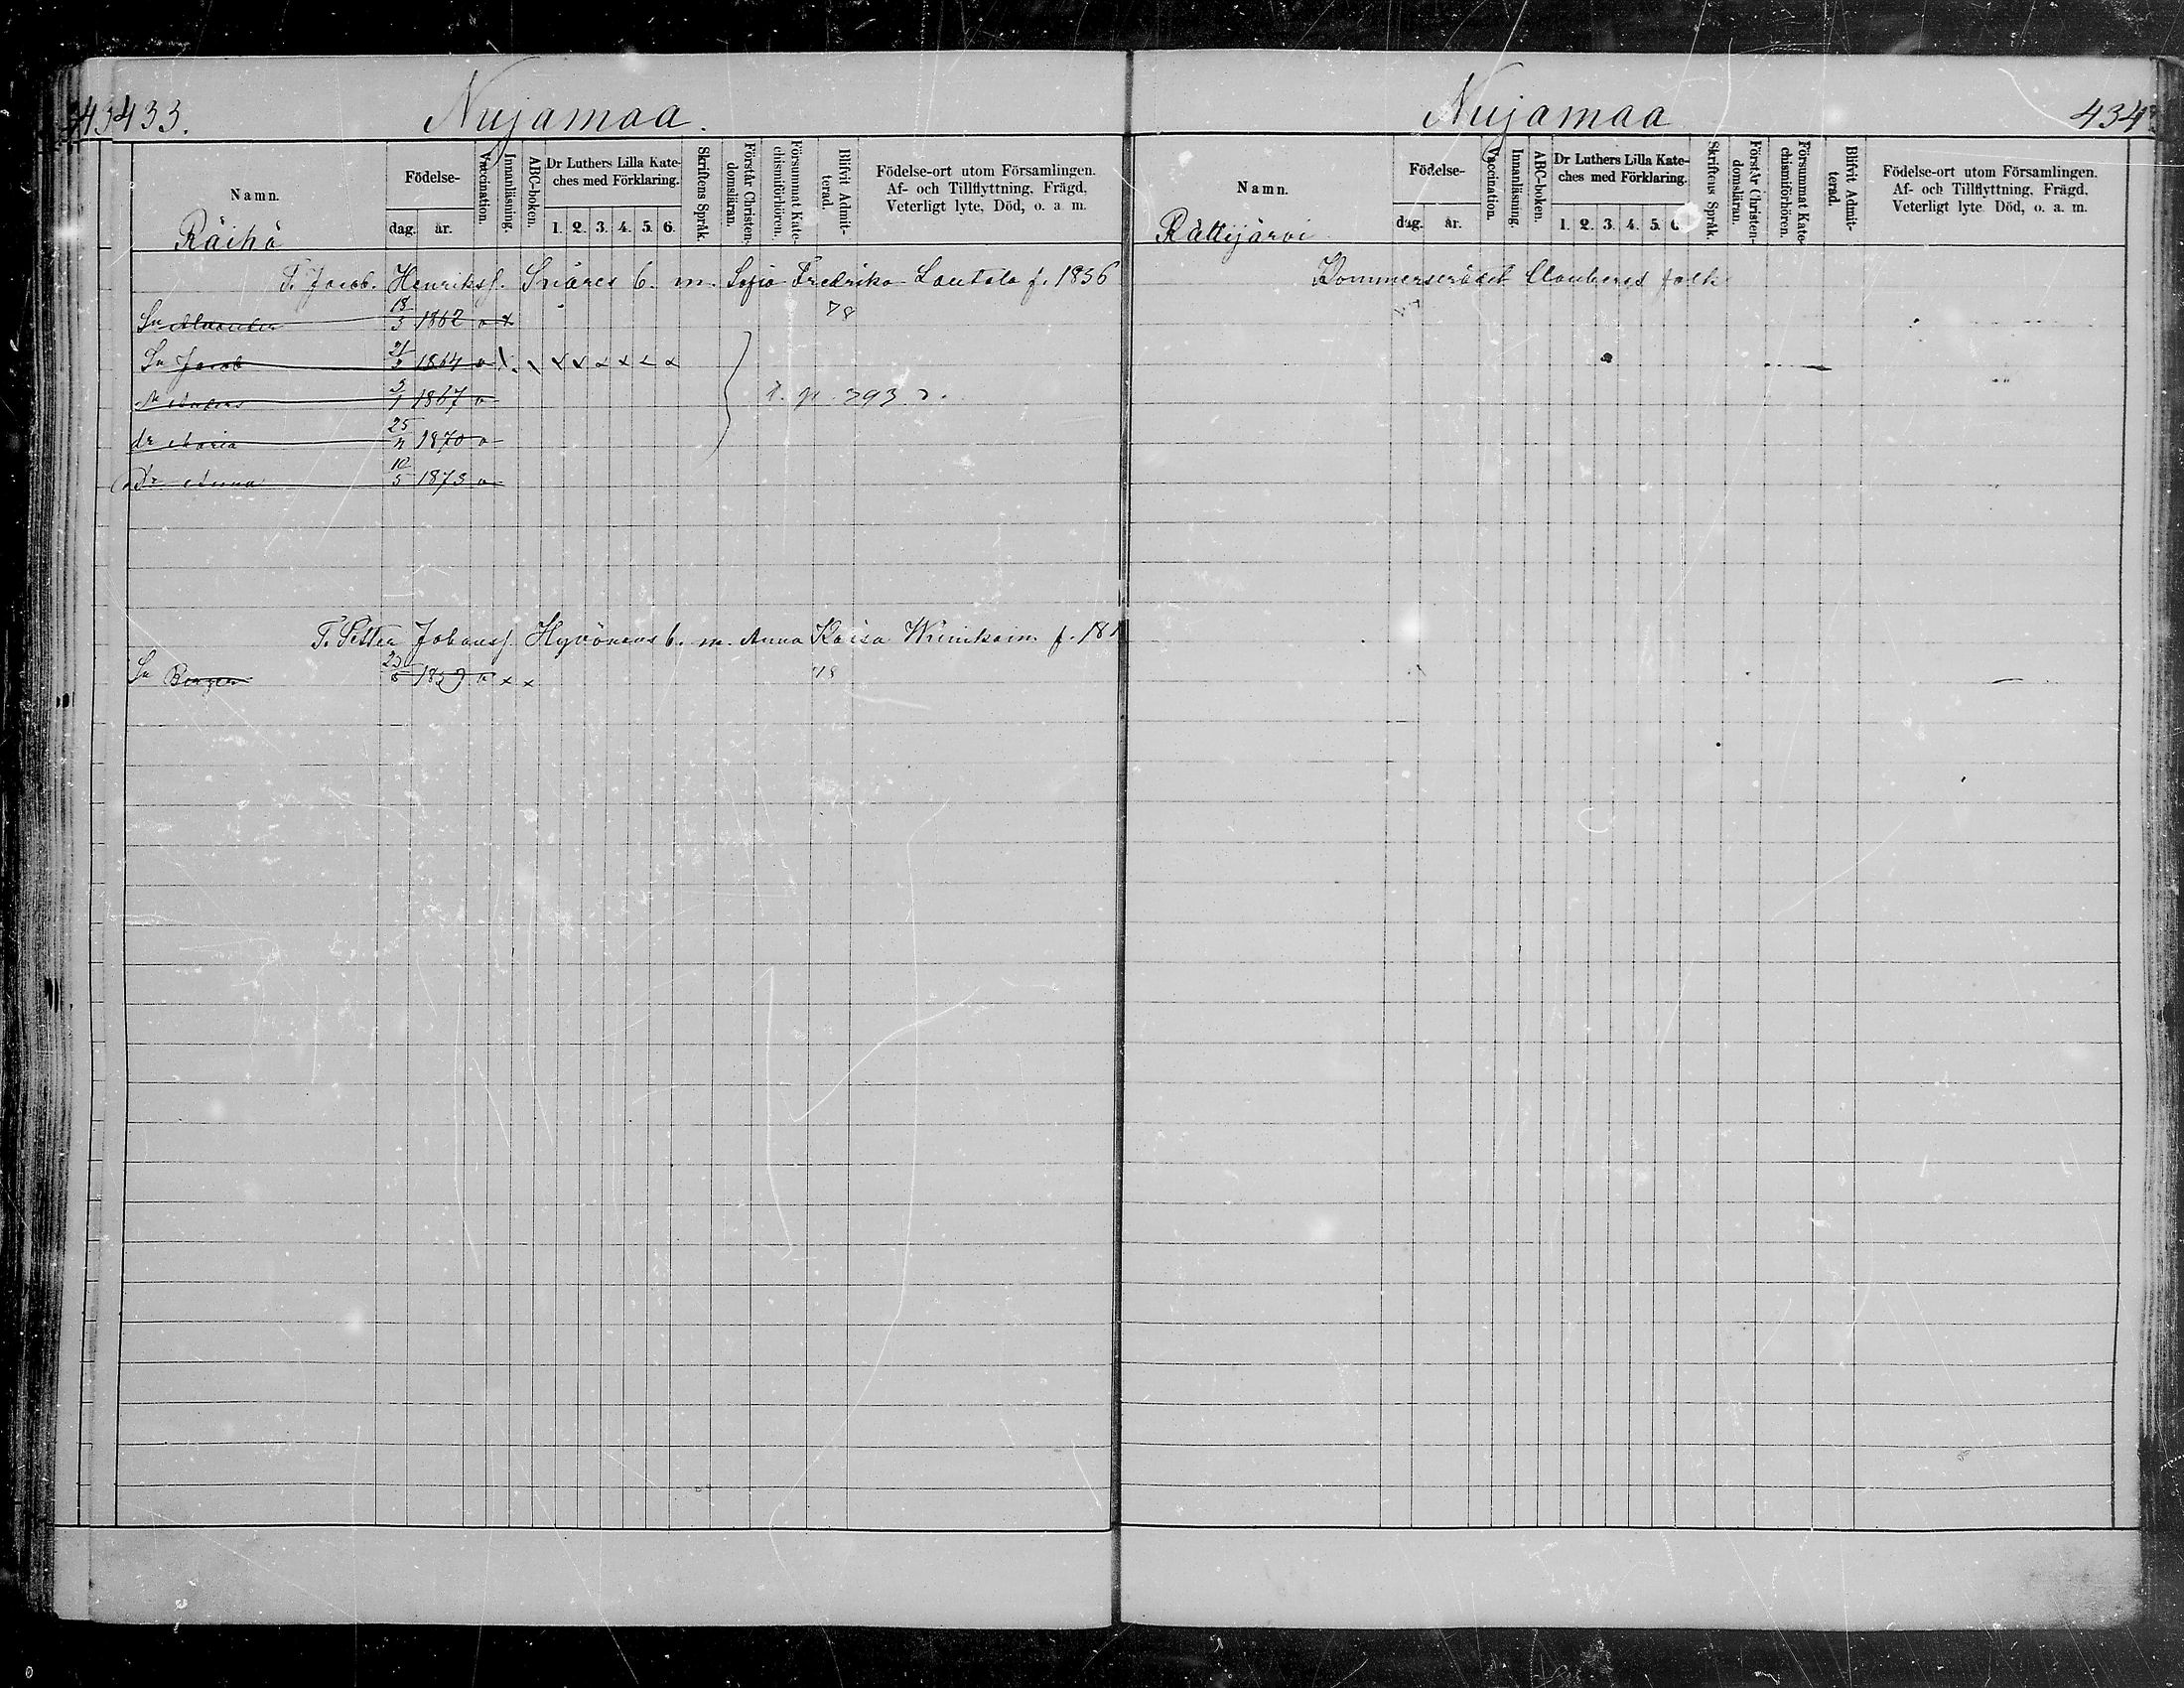 433.
Nujamaa.
Namn.
Födelse-
dag. år.
Vaccination.
Innanläsning.
ABC-boken.
Dr Luthers Lilla Kate-
ches med Förklaring.
1. 2. 3. 4. 5. 6.
Skriftens Språk.
Förstår Christen-
domsläran.
Försummat Kate-
chismiförhören.
Blifvit Admit-
terad.
Födelse-ort utom Församlingen.
Af- och Tillflyttning, Frägd,
Veterligt lyte, Död, o. a. m.
Räihä
T. Jacob. Henrikss. b. m. Sofia Fredrika Lautala f. 1836
Sn 18/3 1862 78
Sn Jacob 21/5 1864
1867 t. p. 393
dr Maria 25 1870
Dr Anna 12/5 1873
T. Petter Johanss. Hyvönens b. m. Anna Kaisa f. 181
Sn 78
Nujamaa
434
Namn.
Födelse-
dag. år.
Vaccination.
Innanläsning.
ABC-boken.
Dr Luthers Lilla Kate-
ches med Förklaring.
1. 2. 3. 4. 5. 6
Skriftens Språk.
Förstår Christen-
domsläran.
Försummat Kate-
chismiförhören.
Blifvit Admit-
terad.
Födelse-ort utom Församlingen.
Af- och Tillflyttning, Frägd,
Veterligt lyte Död, o. a. m.
Rättijärvi
Kommerserådet folk